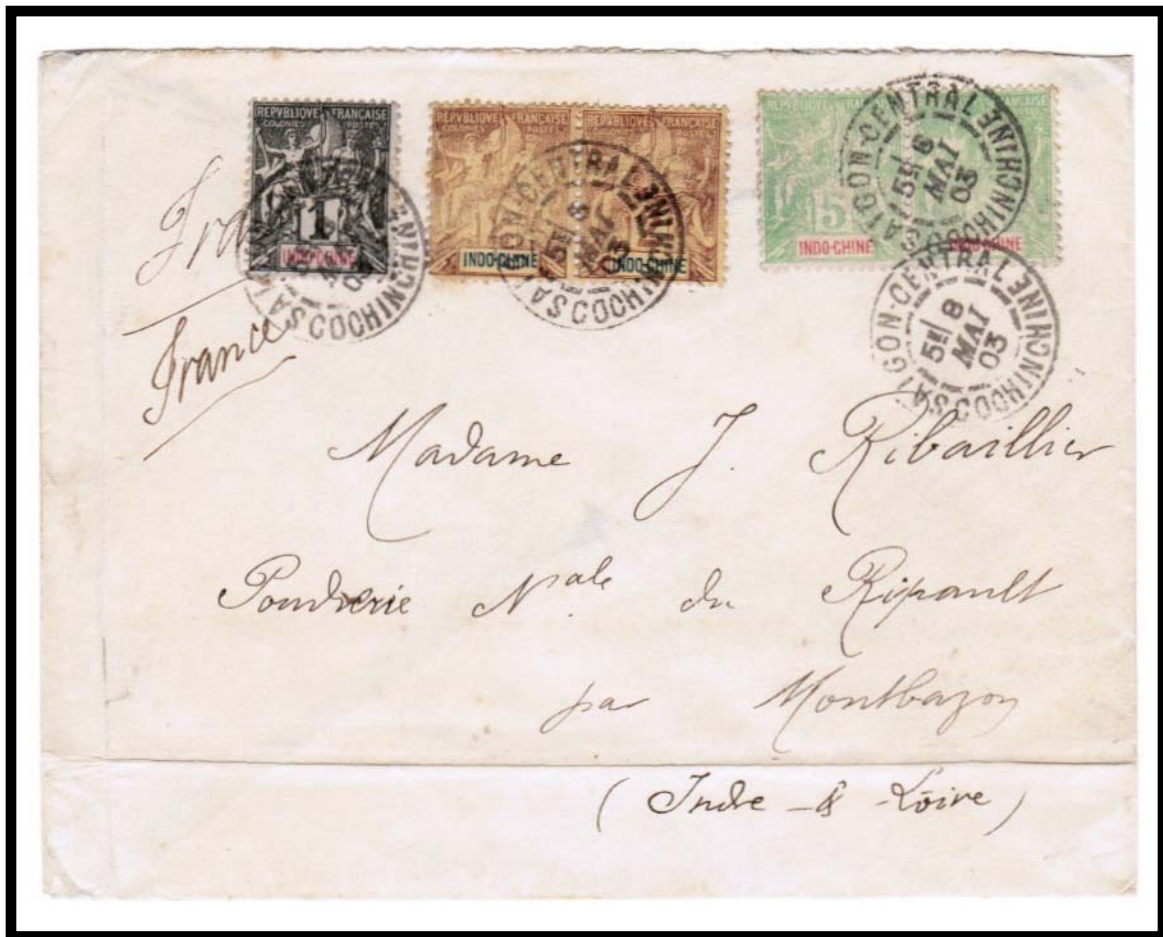 REPVBLIQVE FRANÇAISE
COLONIES POSTES
1
INDO-CHINE
REPVBLIQVE FRANÇAISE
COLONIES POSTES
INDO-CHINE
REPVBLIQVE FRANÇAISE
INDO-CHINE
REPVBLIQUE
5
INDO-CHINE
INDO-CHINE
SAIGON-CENTRAL COCHINCHINE
5E 8
MAI
03
SAIGON-CENTRAL COCHINCHINE
5E 8
MAI
03
SAIGON-CENTRAL COCHINCHINE
5E 8
MAI
03
France
Madame J. Ribaillier
Poudrerie Nale du Ripault
par Montbazon
(Indre & Loire)